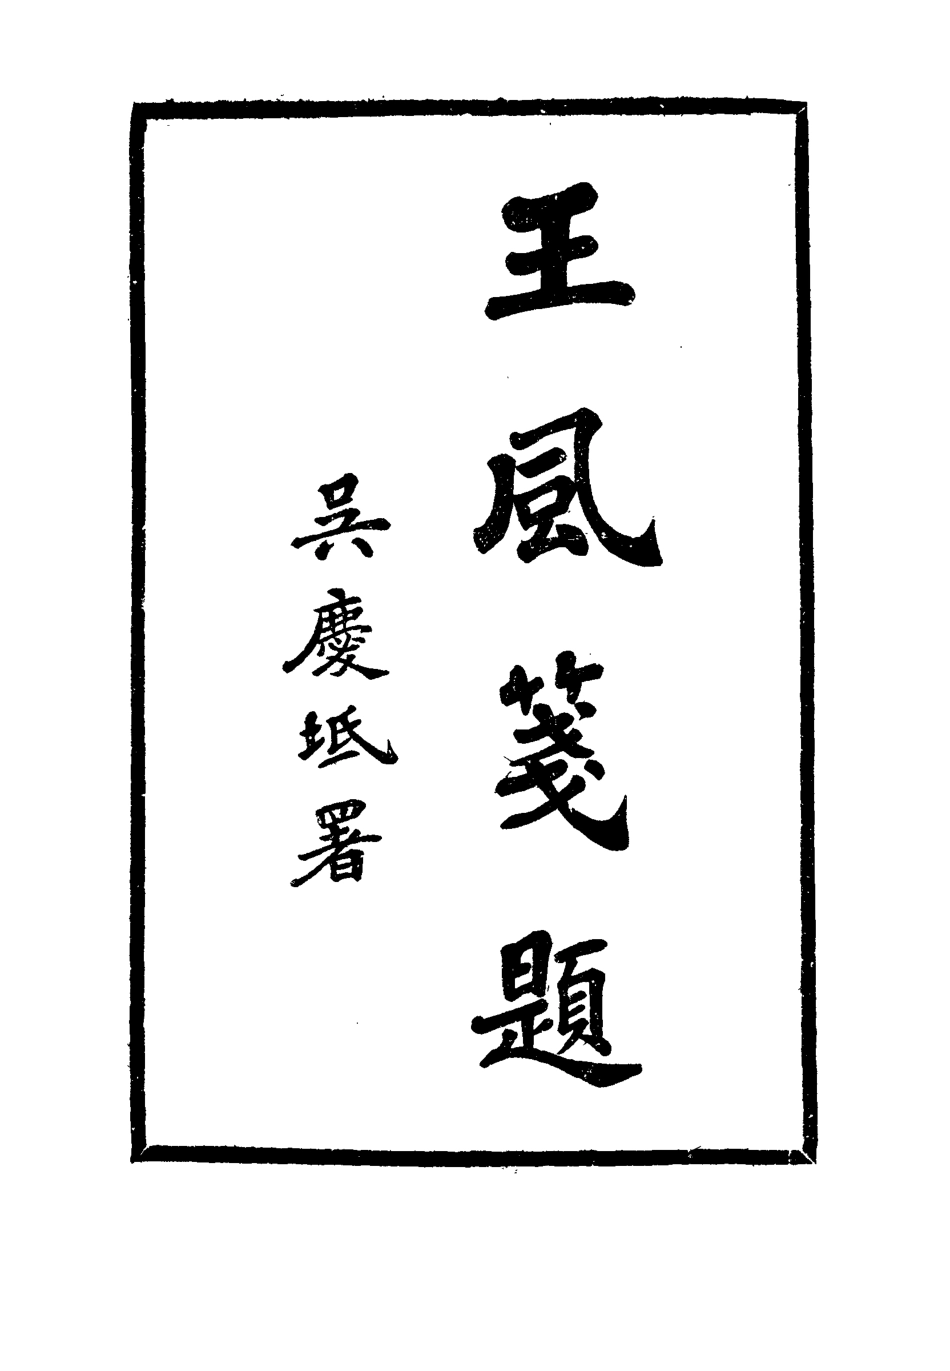 王風箋題
吳慶坻署